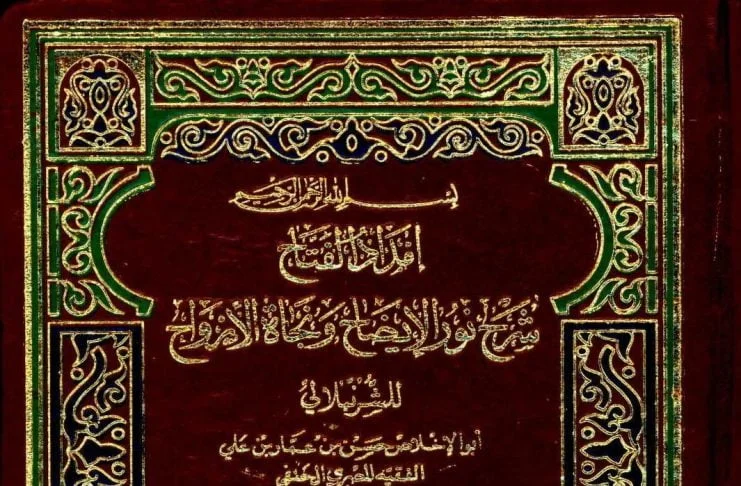 بسم الله الرحمن الرحيم
إمداد الفتاح
شرح نور الإيضاح ونجاة الأرواح
للشرنبلالي
أبو الإخلاص حسن بن عمار بن علي
الفقيه المصري الحنفي